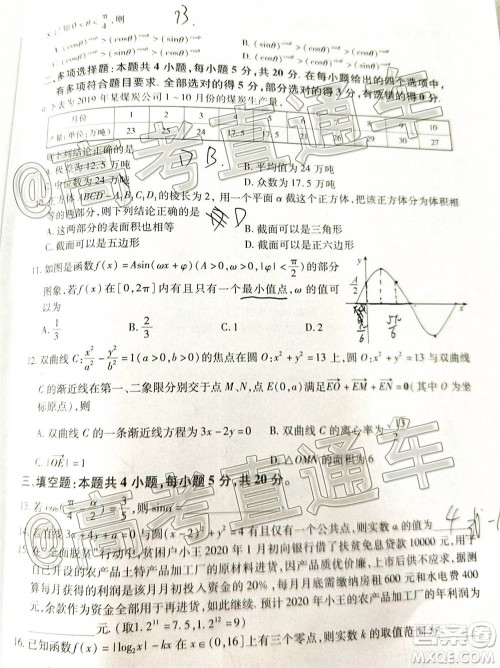 已知0<θ<π/4,则 B.
二、多项选择题:本题共4小题,每小题5分,共20分.在每小题给出的四个选项中,
有多项符合题目要求.全部选对的得5分,部分选对的得3分
下表为2019年某煤炭公司1~10月份的煤炭生产量:
月份 1 2 3 4 5 6 7 8 9 10
(单位:万吨) 23 25 24 17.5 17.5 21 26 29 30 27
则下列结论正确的是 D B.
极差12.5万吨 B.平均数24万吨
中位数为24万吨 D.众数为17.5万吨
10.在正方体ABCD-A₁B₁C₁D₁的棱长为2,用一个平面α截这个正方体,把该正方体分为体积
相等的两部分,则下列结论正确的是 D
A.这两部分的表面积也相等 B.截面可以是三角形
C.截面可以是五边形 D.截面可以是正六边形
11.如图是函数f(x)=Asin(ωx+φ)(A>0,ω>0,|φ|<π/2)的部分
图象,若f(x)在[0,2π]内有且只有一个最小值点,ω的值可
以为
A.1/3 B.2/3 C.1 D.4/3
y A/2 O x π/6 5π/6
12.双曲线C:x²/a²-y²/b²=1(a>0,b>0)的焦点在圆O:x²+y²=13上,圆O:x²+y²=13与双曲线
C的渐近线在第一、二象限分别交于点M,N,点E(0,a)满足EO+EM+EN=0(其中O为
坐标原点),则
A.双曲线C的一条渐近线方程为3x-2y=0 B.双曲线C的离心率为√13/2
C.|OE|=1 D.△OMN的面积为6
三、填空题:本题共4小题,每小题5分,共20分。
13.若cos
14.若直线3x+4y+a=0与圆(x-2)²+y²=4有且仅有一个公共点,则实数a的值为 4
15.在"全面脱贫"行动中,贫困户小王2020年1月初向银行借了扶贫免息贷款10000元,用于
自己开设的农产品土特产品加工厂的原材料进货,因产品质优价廉,上市后供不应求,据测
算每月获得的利润是该月月初投入资金的20%,每月底需缴纳房租600元和水电费400
元,余款作为资金全部用于再进货,如此继续.预计2020年小王的农产品加工厂的年利润为
元.(取1.2¹¹=7.5,1.2¹²=9)
16.已知函数f(x)=|log₂x|-kx在x∈(0,16]上有三个零点,则实数k的取值范围为
@高考直通车
@高考直通车
@高考直通车
答案圈
MXQE.COM